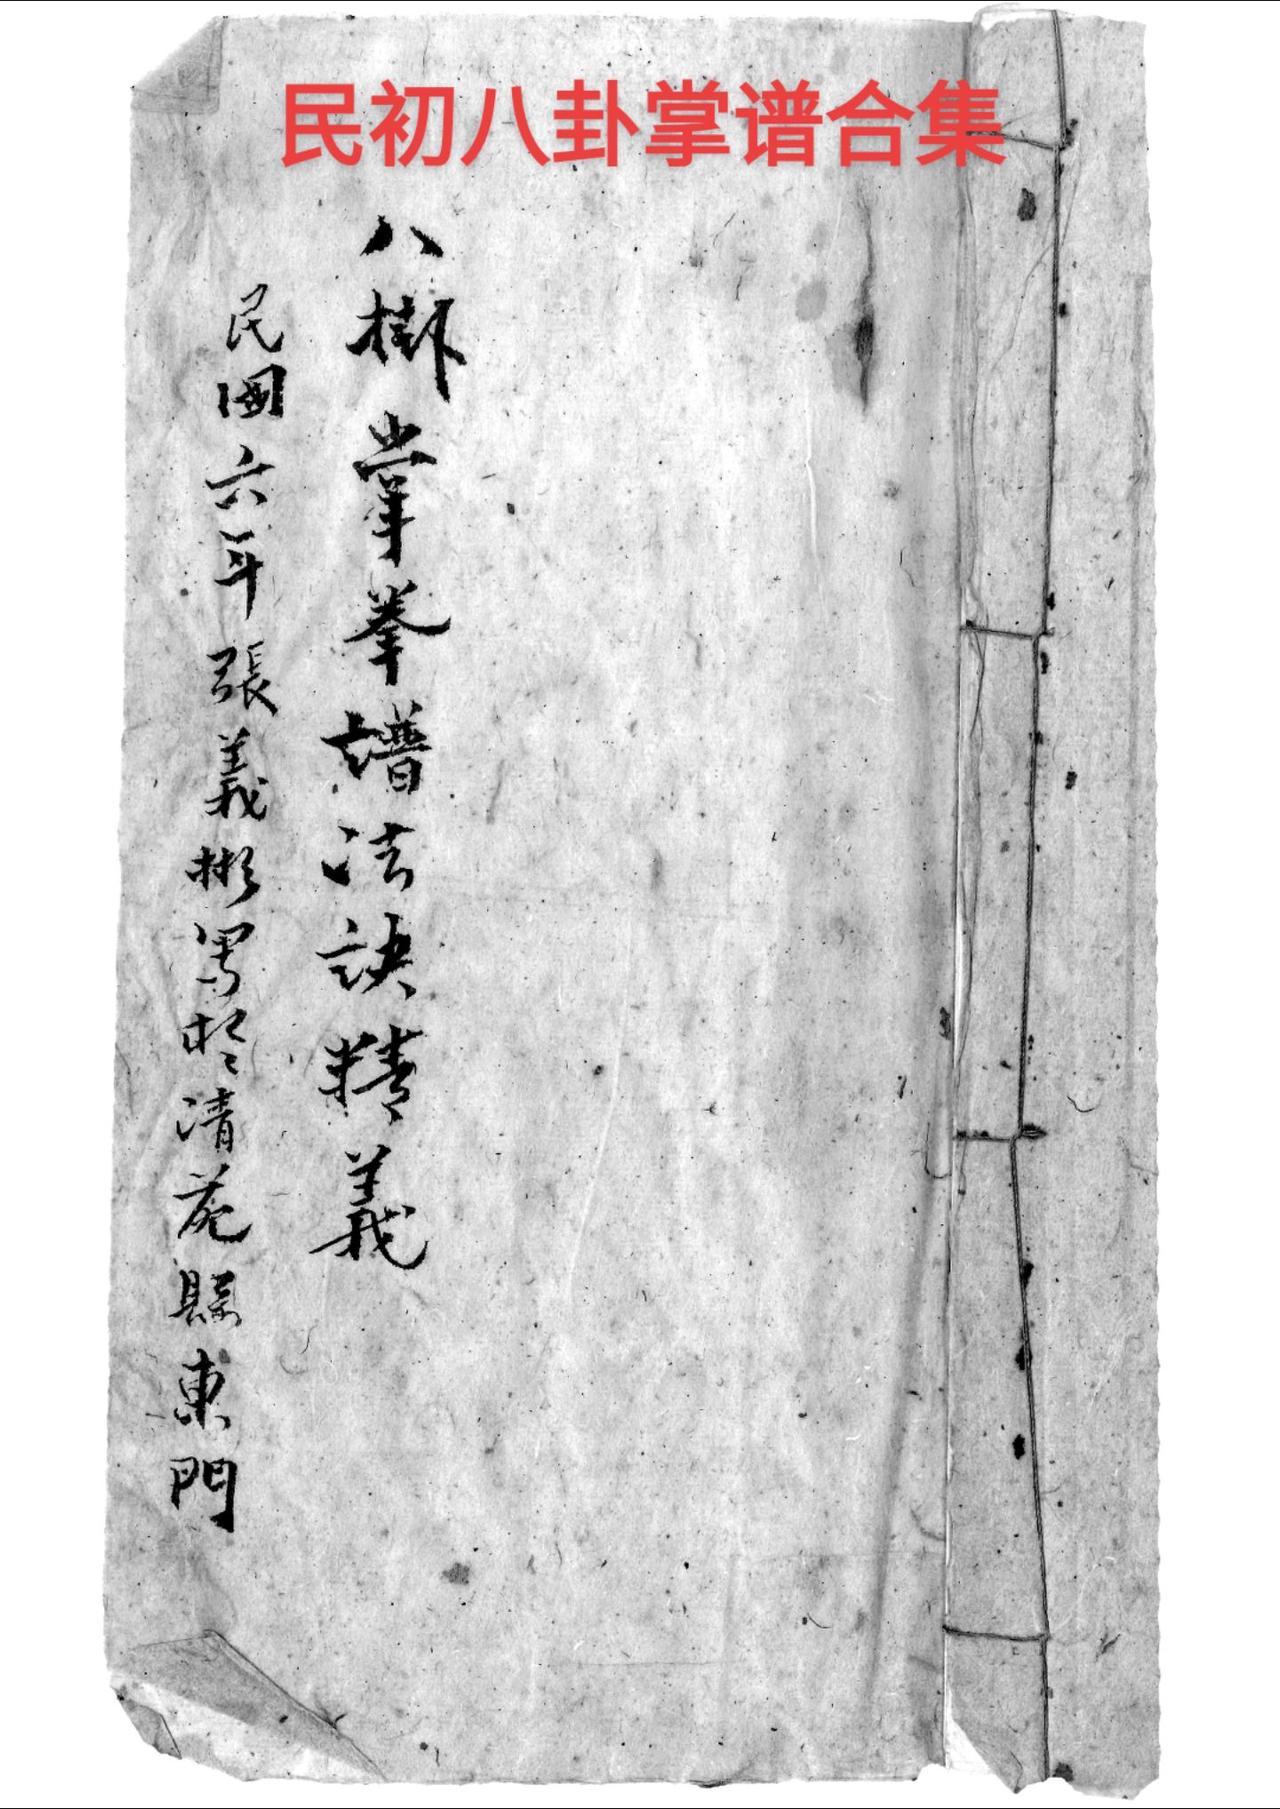 民初八卦掌谱合集
八掛掌拳譜法訣精義
民国六年張義彬寫於清苑縣東門